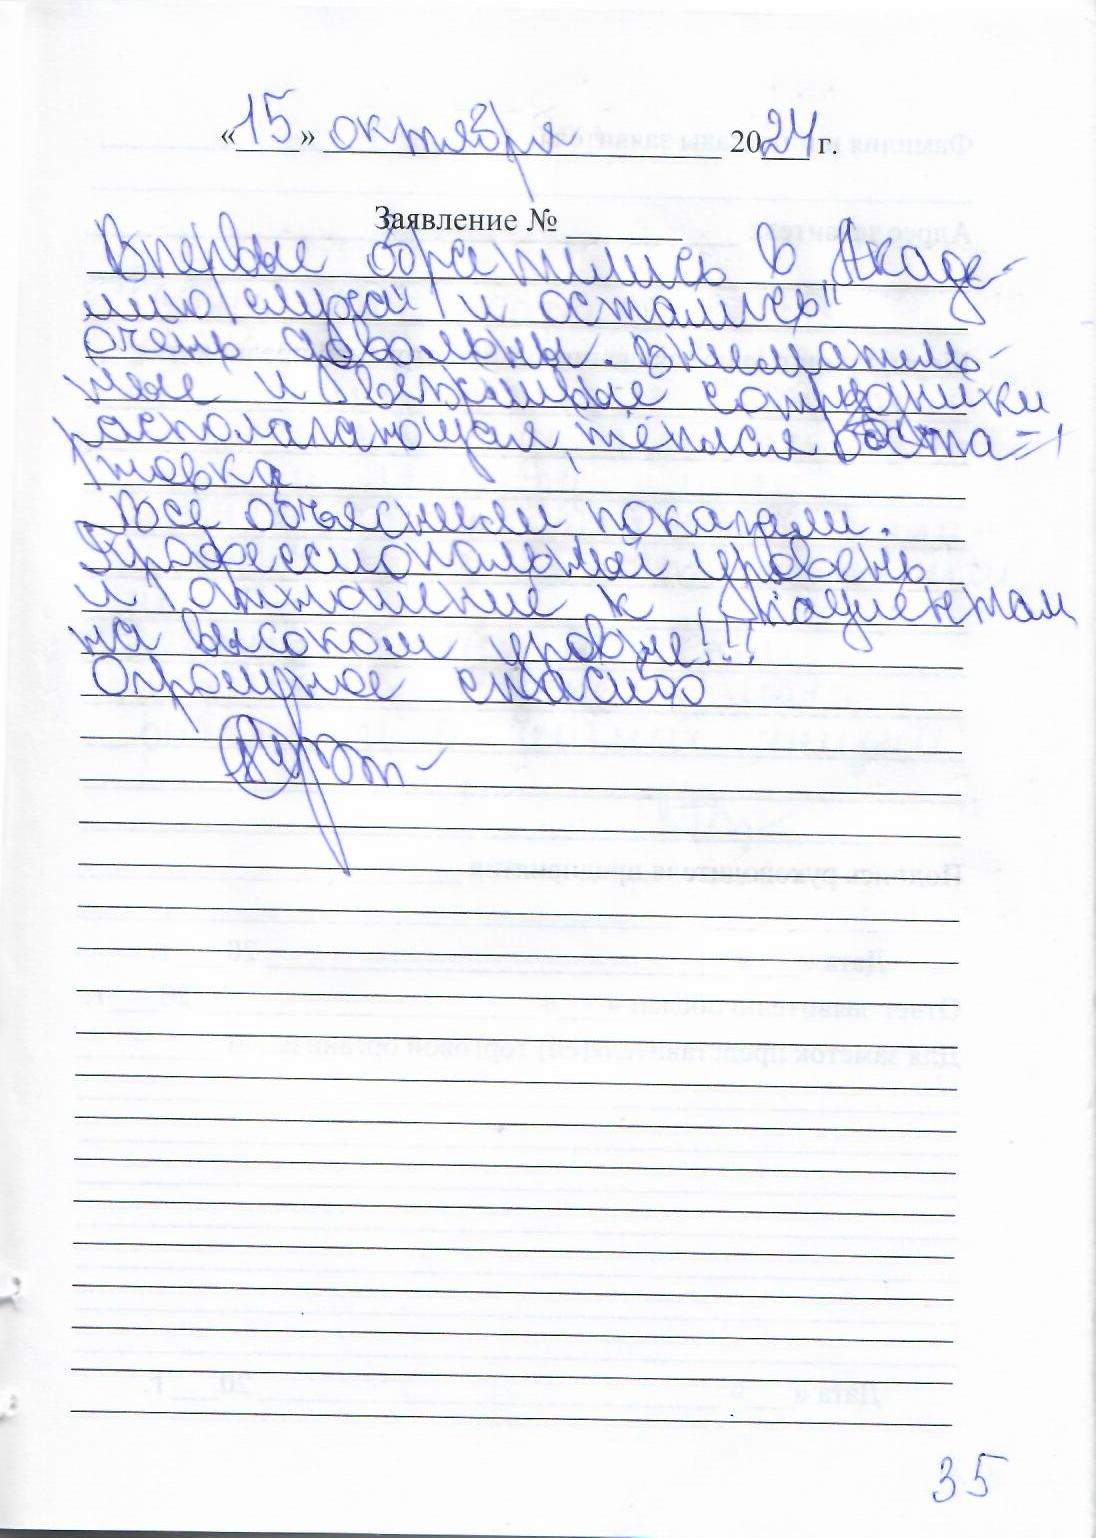 «15» октября 2024 г.
Заявление № ________
Впервые обратились в "Акаде-
мию слуха" и остались
очень довольны. Вниматель-
ные и вежливые сотрудники
располагающая, тёплая обста-
новка
Все объяснили показали.
Профессиональный уровень
и отношение к пациентам
на высоком уровне!!!
Огромное спасибо
35